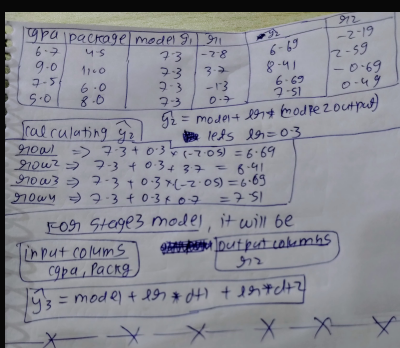 cgpa package model y1 r1 ŷ2 r2
6.7 4.5 7.3 -2.8 6.69 -2.19
9.0 11.0 7.3 3.7 8.41 2.59
7.5 6.0 7.3 -1.3 6.69 -0.69
5.0 8.0 7.3 0.7 7.51 0.49
Calculating ŷ2
ŷ2 = model + lr * (model 2 output)
lets lr = 0.3
row1 => 7.3 + 0.3 * (-2.05) = 6.69
row2 => 7.3 + 0.3 * 3.7 = 8.41
row3 => 7.3 + 0.3 * (-2.05) = 6.69
row4 => 7.3 + 0.3 * 0.7 = 7.51
For stage3 model, it will be
input colums
cgpa, Packg
output columns
r2
ŷ3 = model + lr * dt1 + lr * dt2